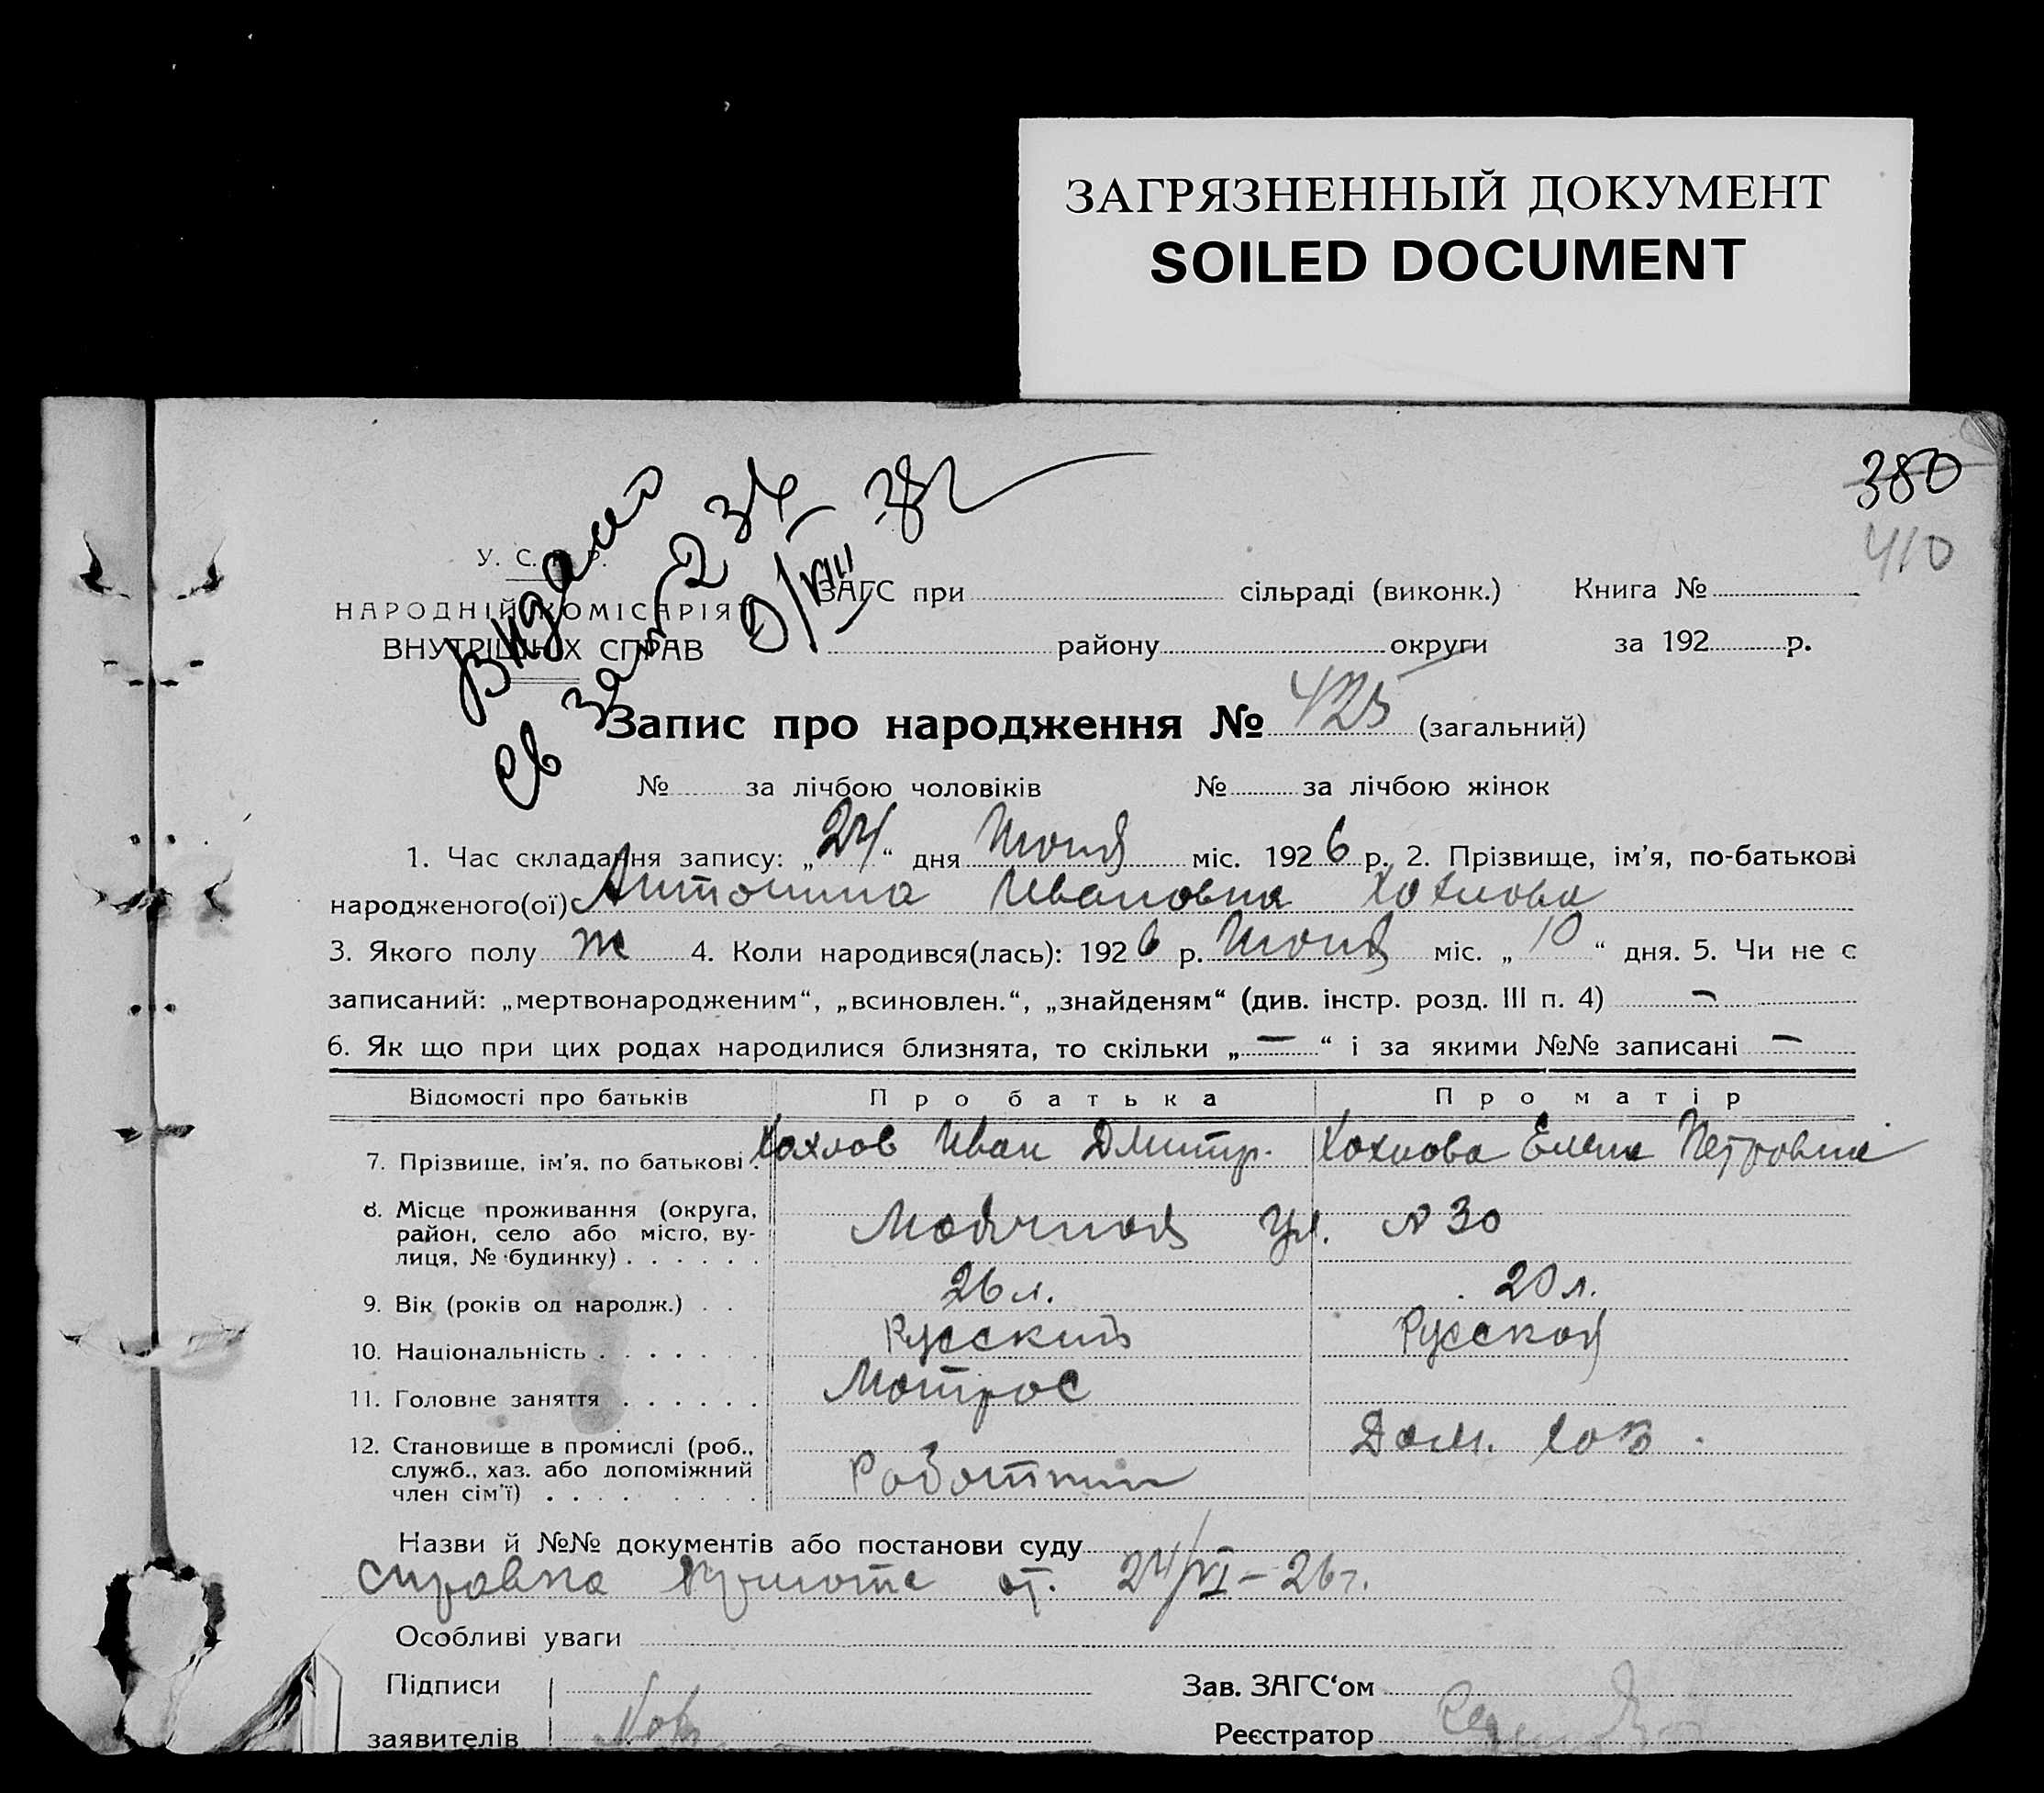 ЗАГРЯЗНЕННЫЙ ДОКУМЕНТ
SOILED DOCUMENT
380
410
У. С. Р. Р.
НАРОДНІЙ КОМІСАРІЯТ
ВНУТРІШНІХ СПРАВ
ЗАГС при сільраді (виконк.) Книга №
району округи за 192 р.
Запис про народження № 425 (загальний)
№ за лічбою чоловіків № за лічбою жінок
1. Час складання запису: „24“ дня Июня міс. 1926 р. 2. Прізвище, ім'я, по-батькові
народженого(ої) Антонина Ивановна Хохлова
3. Якого полу ж 4. Коли народився(лась): 1926 р. Июня міс. „10“ дня. 5. Чи не є
записаний: „мертвонародженим“, „всиновлен.“, „знайденям“ (див. інстр. розд. III п. 4) —
6. Як що при цих родах народилися близнята, то скільки „—“ і за якими №№ записані —
Відомості про батьків Про батька Про матір
7. Прізвище, ім'я, по батькові . Хохлов Иван Дмитр. Хохлова Елена Петровна
8. Місце проживання (округа,
район, село або місто, ву-
лиця, № будинку) . . . . . . Маячная ул. № 30
9. Вік (років од народж.) . . 26 л. 20 л.
10. Національність . . . . . . Русский Русская
11. Головне заняття . . . . . . Матрос
12. Становище в промислі (роб.,
служб., хаз. або допоміжний
член сім'ї) . . . . . . . . Работник Дом. хоз.
Назви й №№ документів або постанови суду
справка от. 24/VI – 26 г.
Особливі уваги
Підписи Зав. ЗАГС'ом
заявителів Реєстратор